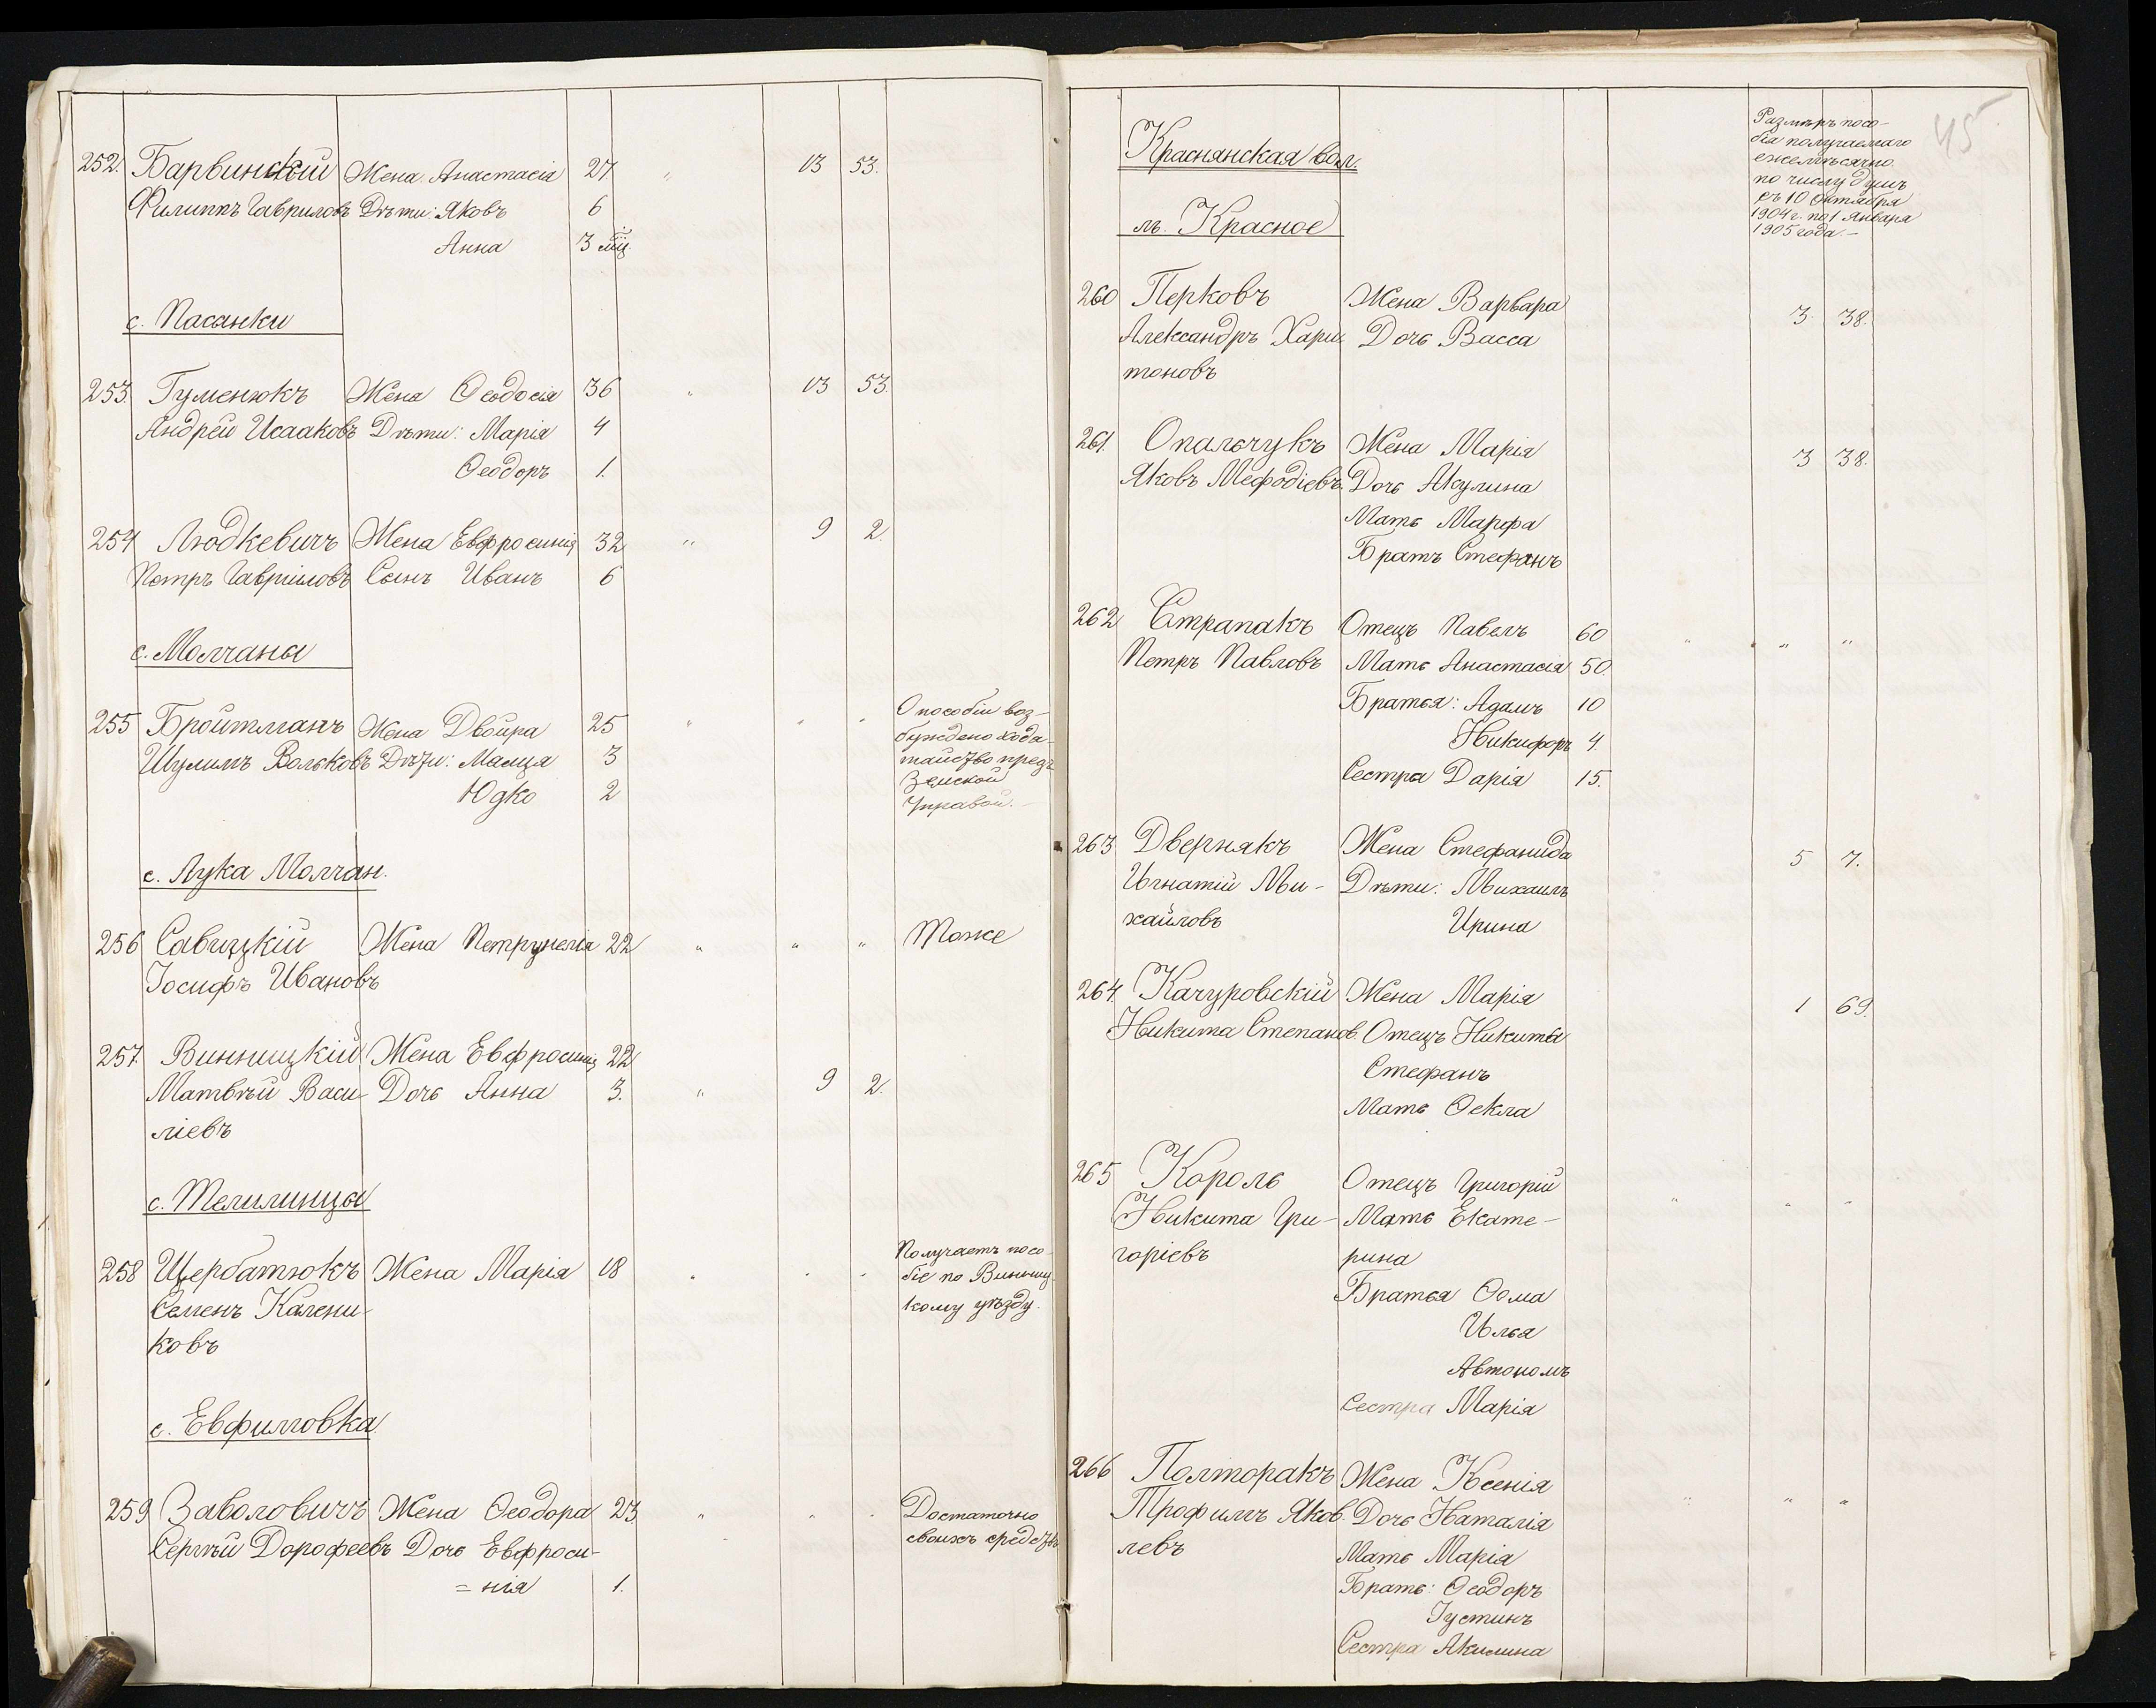 252. Барвинскій Жена Анастасія 27 " 13 53.
Филиппъ Гавриловъ Дѣти: Яковъ 6
Анна 3 мц.
с. Пасанки
253. Гуменюкъ Жена Ѳеодосія 36 " 13 53.
Андрей Исааковъ Дѣти: Марія 4
Ѳеодоръ 1.
254 Людкевичъ Жена Евфросинія 32 " 9 2.
Петръ Гавріиловъ Сынъ Иванъ 6
с. Молчаны
255 Бройтманъ Жена Двойра 25 " " "
Шулимъ Вольковъ Дѣти: Маица 3
Юдко 2
О пособіи воз-
буждено хода-
тайство предъ
Земской
Управой.
с. Лука Молчан.
256 Савицкій Жена Петрунелія 22 " " " Тоже
Іосифъ Ивановъ
257 Винницкій Жена Евфросинія 22
Матвѣй Васи- Дочь Анна 3. " 9 2.
ліевъ
с. Телилинцы
258 Щербатюкъ Жена Марія 18 " " "
Семенъ Калени-
ковъ
Получаетъ посо-
біе по Винниц-
кому уѣзду.
с. Евфиловка
259 Заволовичъ Жена Ѳеодора 23 " " "
Сергѣй Дорофеевъ Дочь Евфроси-
= нія 1.
Достаточно
своихъ средствъ
45
Размѣръ посо-
бія получаемаго
ежемѣсячно
по числу душъ
съ 10 Октября
1904 г. по 1 Января
1905 года. —
Краснянская вол.
м. Красное
260 Перковъ Жена Варвара 3 38.
Александръ Хари- Дочь Васса
тоновъ
261. Опальчукъ Жена Марія 3 38.
Яковъ Мефодіевъ Дочь Акулина
Мать Марфа
Братъ Стефанъ
262 Страпакъ Отецъ Павелъ 60 " " "
Петръ Павловъ Мать Анастасія 50.
Братья: Адамъ 10
Никифоръ 4.
Сестра Дарія 15.
263 Двернякъ Жена Стефанида 5 7.
Игнатій Ми- Дѣти: Михаилъ
хайловъ Ирина
264. Качуровскій Жена Марія 1 69.
Никита Степанов. Отецъ Никиты
Стефанъ
Мать Ѳекла
265 Король Отецъ Григорій " " "
Никита Гри- Мать Екате-
горіевъ рина
Братья Ѳома
Илья
Автономъ
Сестра Марія
266 Полторакъ Жена Ксенія " " "
Трофимъ Яков- Дочь Наталія
левъ Мать Марія
Брать: Ѳеодоръ
Іустинъ
Сестра Акилина